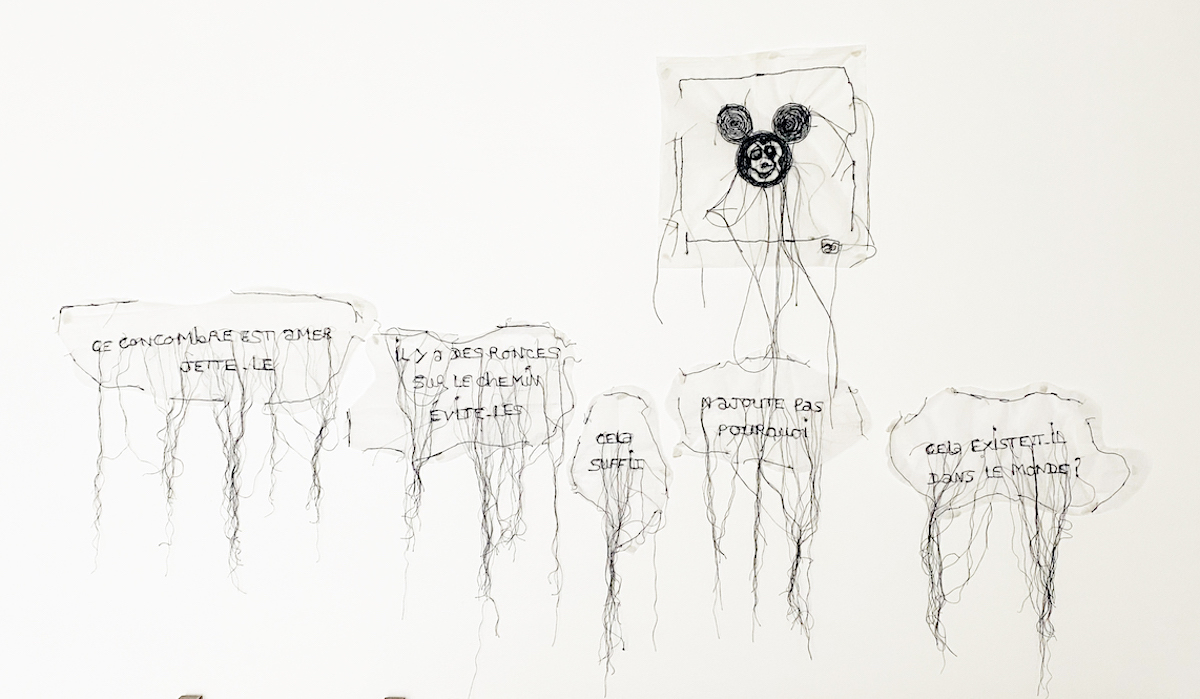 CE CONCOMBRE EST AMER
JETTE-LE
IL Y A DES RONCES
SUR LE CHEMIN
ÉVITE-LES
CELA
SUFFIT
N'AJOUTE PAS
POURQUOI
CELA EXISTE-T-IL
DANS LE MONDE?